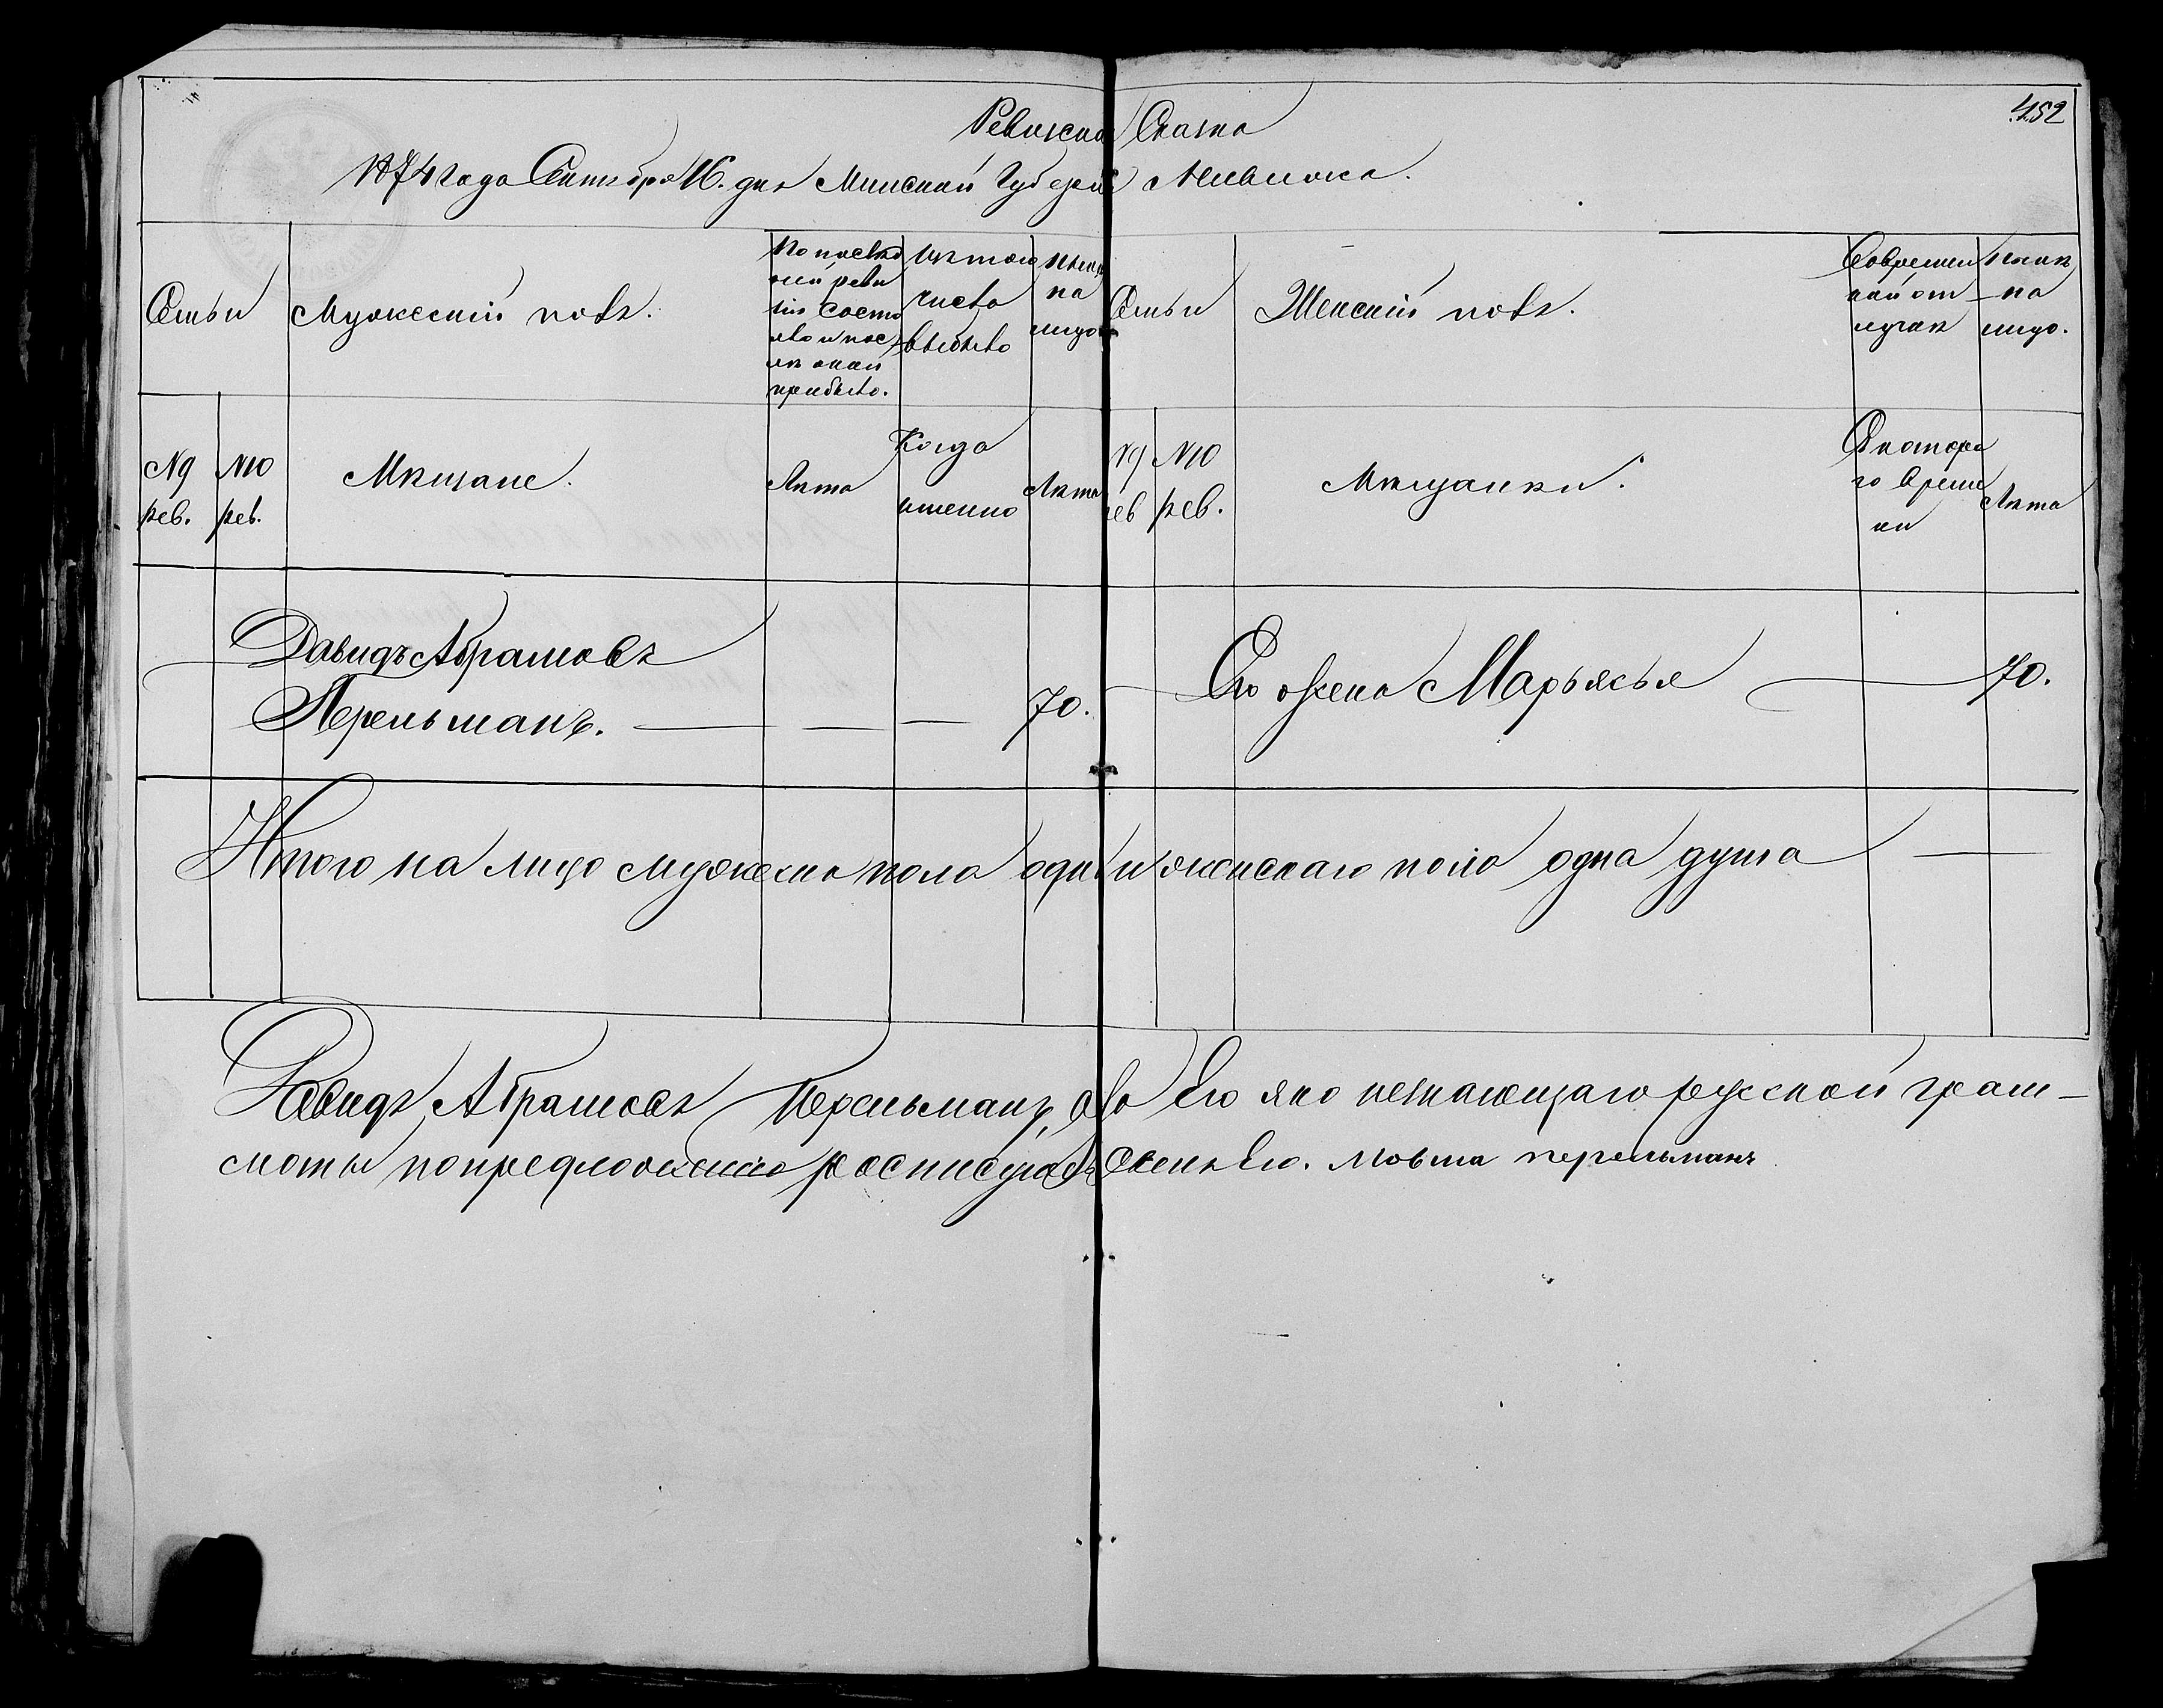 452
Ревизская Сказка
1874 года Сентября 16. дня Минской Губерніи
Семьи
Мужескій полъ.
По послѣд
ней реви
зіи состо
яло и пос
лѣ оной
прибыло.
Изъ того
числа
выбыло
Нынѣ
на
лицо
Семьи
Женскій полъ.
Во времен
ной от
лучкѣ
Нынѣ
на
лицо.
№ 9
рев.
№ 10
рев.
Мѣщане.
Лѣта
Когда
именно
Лѣта
№ 9
рев
№ 10
рев.
Мѣщанки.
Съ котора
го време
ни
Лѣта
Давидъ Абрамовъ
Перельманъ.
70.
Его жена Марьясья
70.
Итого на лицо мужеска пола одинъ и женскаго пола одна душа
Давидъ Абрамовъ Перельманъ, а за Его яко незнающаго русской грам-
моты по предложенію росписуюсь Его. Мовша перельманъ